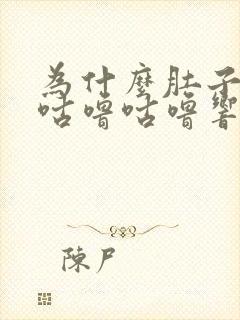 為什麼肚子
咕嚕咕嚕響
陳尸